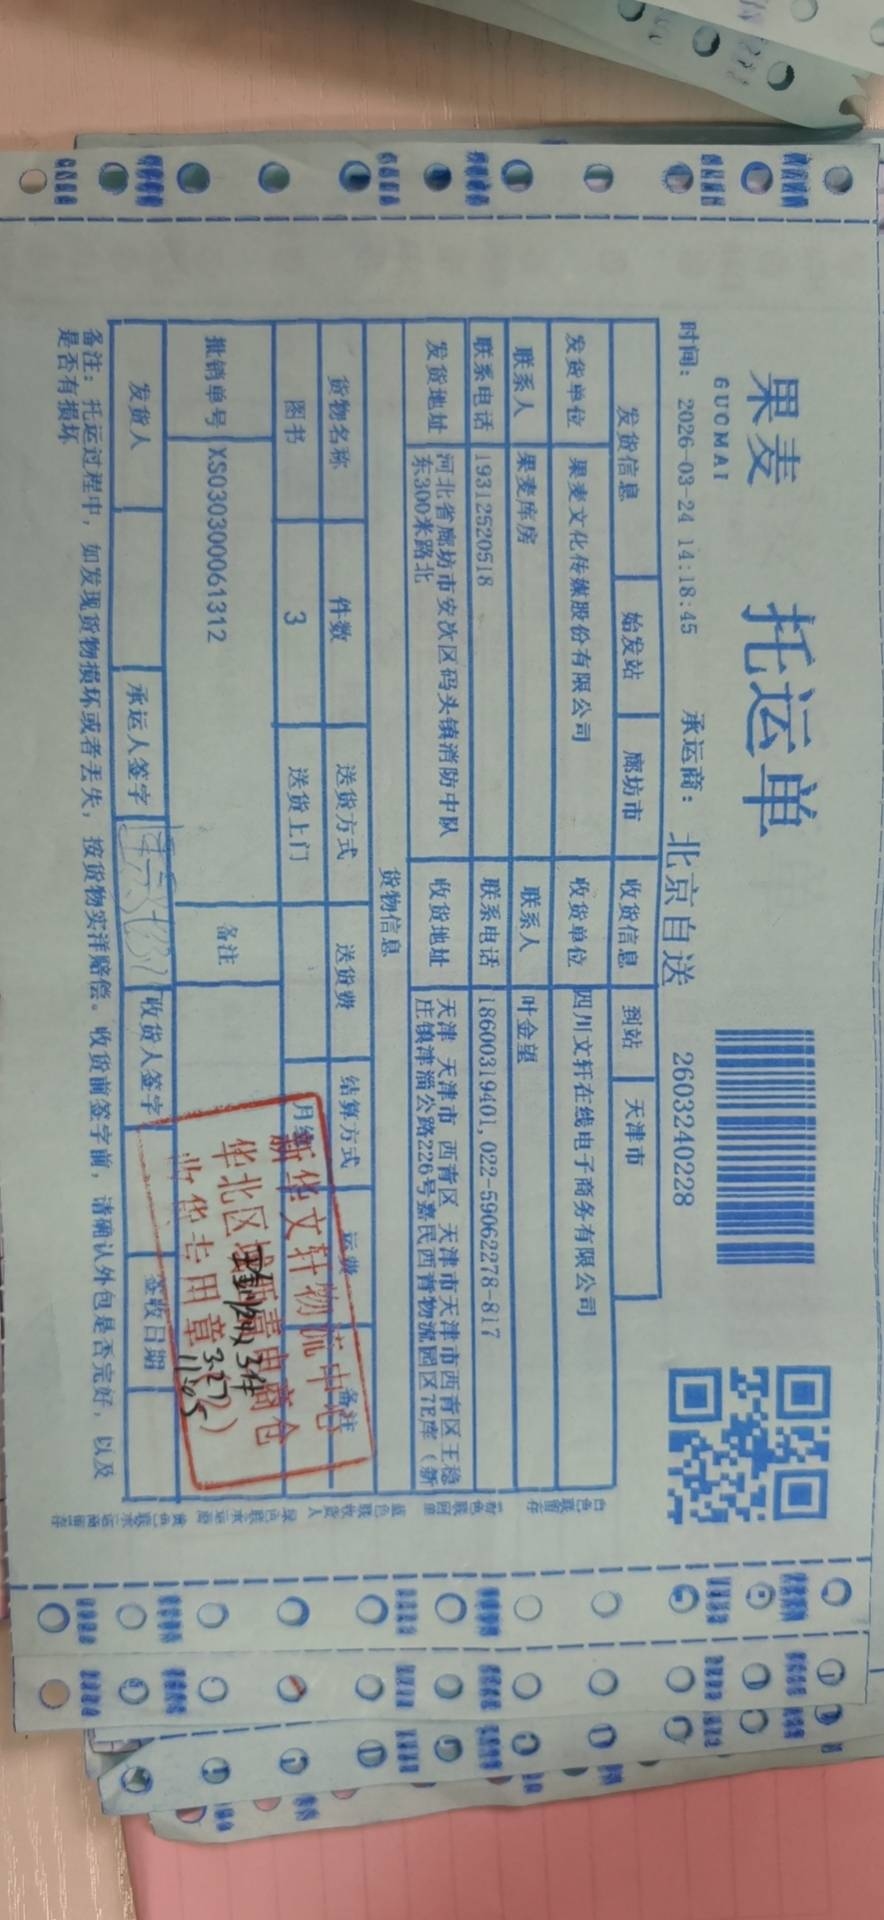 果麦
GUOMAI
托运单
时间: 2026-03-24 14:18:45 承运商: 北京自送 2603240228
发货信息 始发站 廊坊市 收货信息 到站 天津市
发货单位 果麦文化传媒股份有限公司 收货单位 四川文轩在线电子商务有限公司
联系人 果麦库房 联系人 叶金望
联系电话 19312520518 联系电话 18600319401,022-59062278-817
发货地址 河北省廊坊市安次区码头镇消防中队东300米路北 收货地址 天津 天津市 西青区 天津市天津市西青区王稳庄镇津淄公路226号嘉民西青物流园区7E库（新
货物信息
货物名称 件数 送货方式 送货费 结算方式 运费 备注
图书 3 送货上门 月结
批销单号 XS030300061312 备注
发货人 承运人签字 收货人签字 签收日期
备注: 托运过程中, 如发现货物损坏或者丢失, 按货物实洋赔偿。收货前签字前, 请确认外包是否完好, 以及
是否有损坏
新华文轩物流中心
华北区域 电商仓
收货专用章(2)
3件
3.27
11:05
白色联留存 粉色联回单 蓝色联收货人 绿色联承运商 黄色联承运商留存